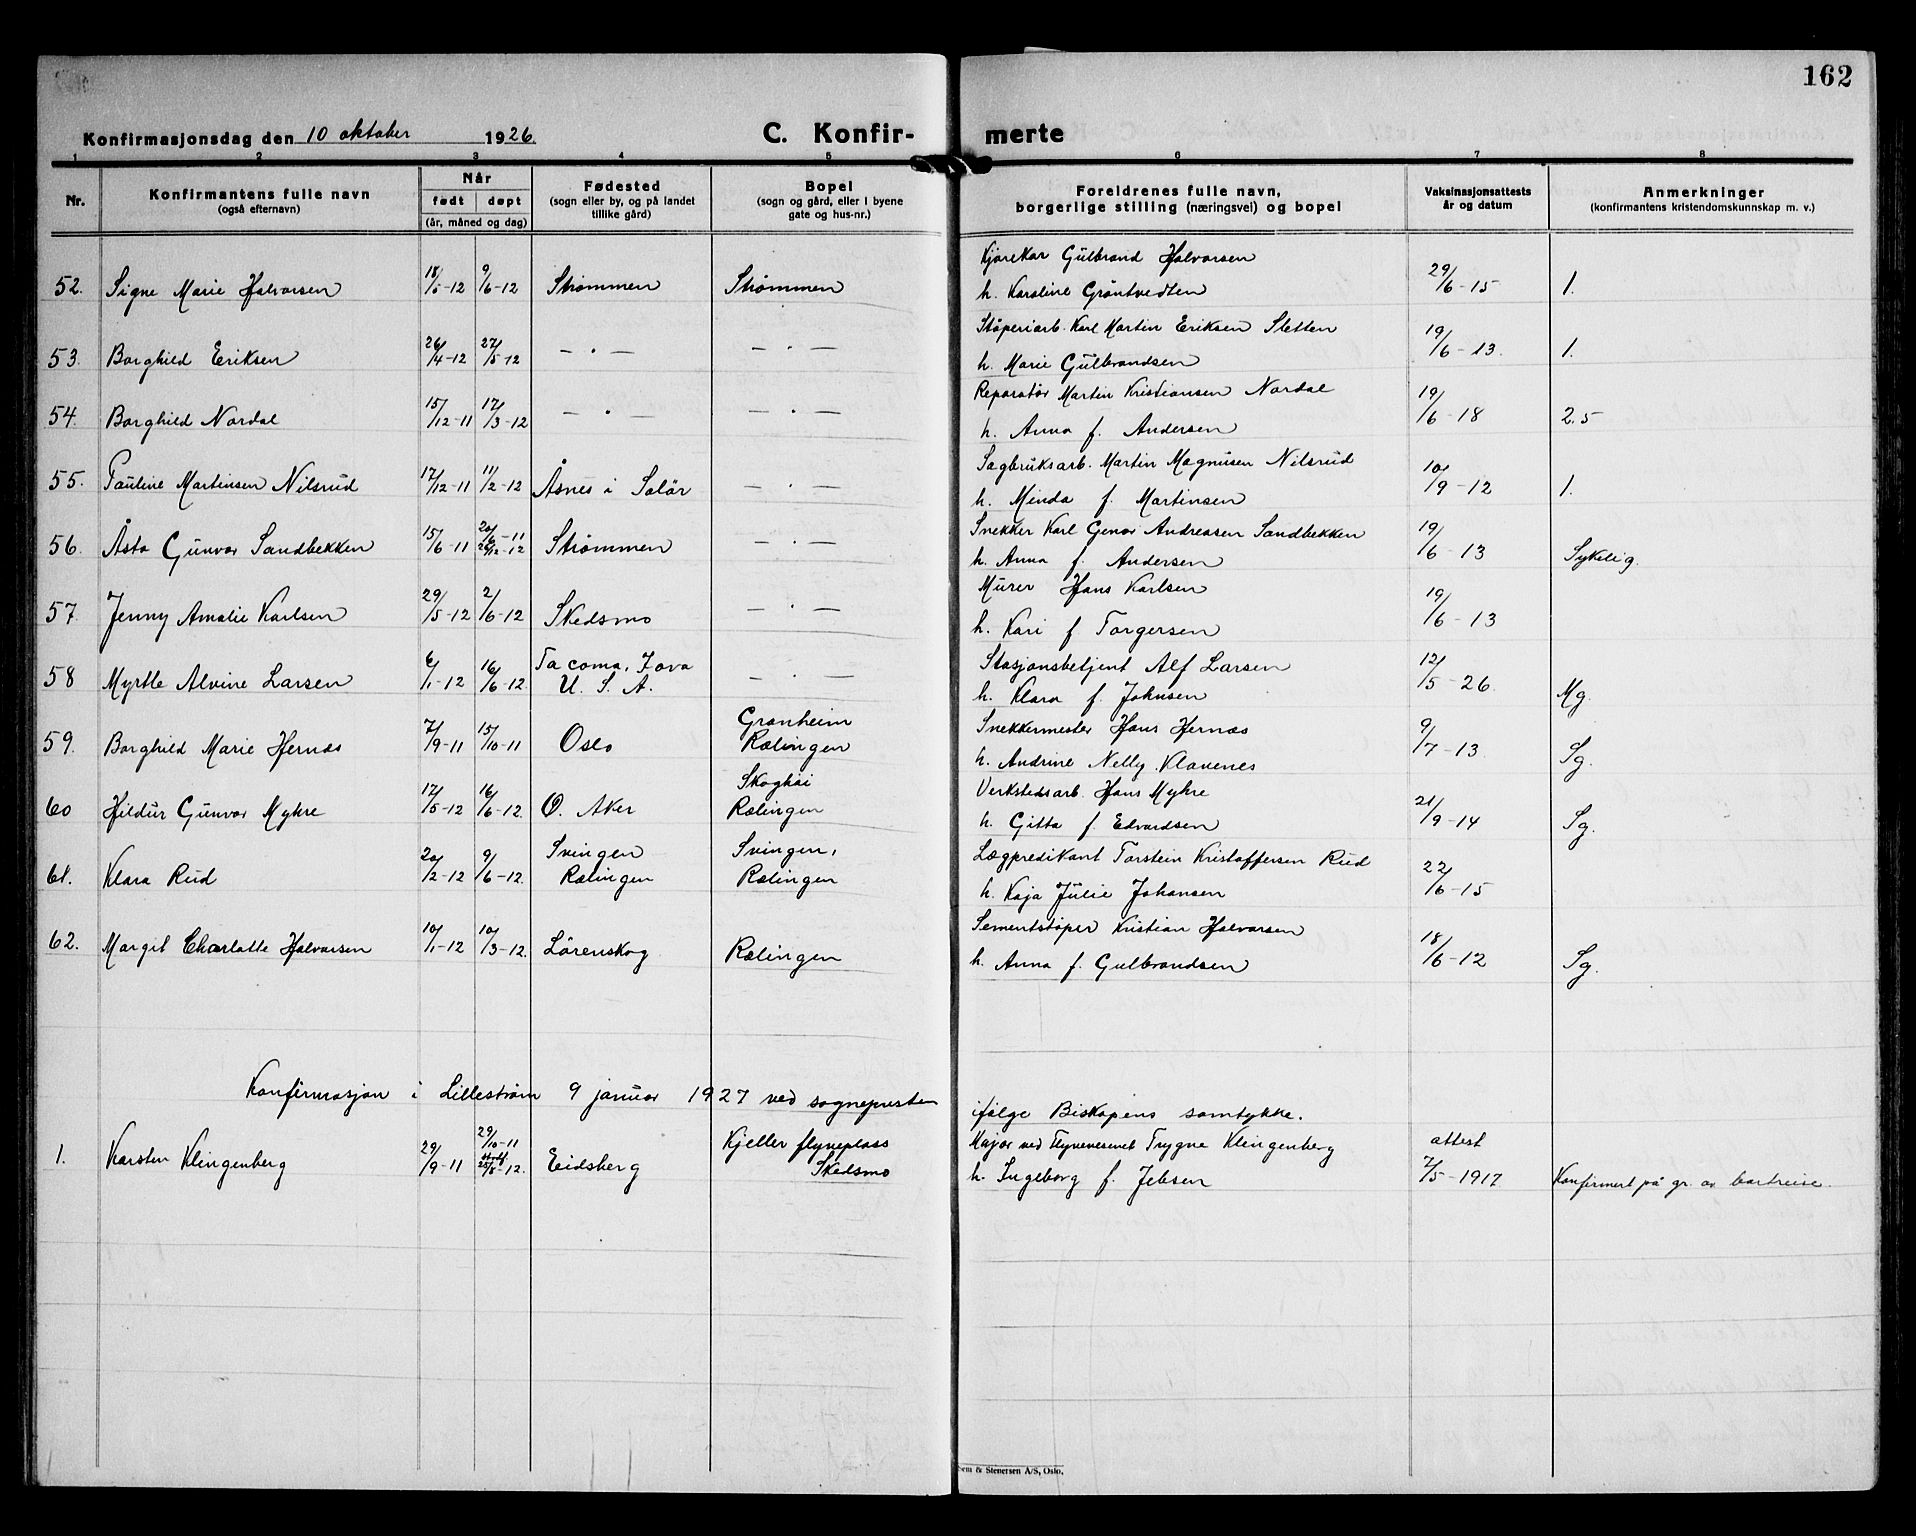 162
Konfirmasjonsdag den 10 oktober 1926. C. Konfir- merte
1 2 3 4 5 6 7 8
Nr. Konfirmantens fulle navn (også efternavn) Når født døpt (år, måned og dag) Fødested (sogn eller by, og på landet tillike gård) Bopel (sogn og gård, eller i byene gate og hus-nr.) Foreldrenes fulle navn, borgerlige stilling (næringsvei) og bopel Vaksinasjonsattests år og datum Anmerkninger (konfirmantens kristendomskunnskap m. v.)
Kjørekar Gulbrand Halvorsen
52. Signe Marie Halvorsen 18/5-12 9/6-12 Strømmen Strømmen h. Karoline Gröntvedten 29/6-15 1.
Støperiarb. Karl Martin Eriksen Sletten
53. Borghild Eriksen 26/4-12 27/5-12 — . — — . — h. Marie Gulbrandsen 19/6-13. 1.
Reparatør Martin Kristiansen Nordal
54. Borghild Nordal 15/12-11 17/3-12 — . — — . — h. Anna f. Andersen 19/6-18 2.5
Sagbruksarb. Martin Magnusen Nilsrud
55. Pauline Martinsen Nilsrud 17/12-11 11/2-12 Åsnes i Solör — . — h. Minda f. Martinsen 10/9-12 1.
Snekker Karl Genor Andreasen Sandbekken
56. Åsta Gunvor Sandbekken 15/6-11 20/6-11 26/12-12 Strømmen — . — h. Anna f. Andersen 19/6-13 Sykelig.
Murer Hans Karlsen
57. Jenny Amalie Karlsen 29/5-12 2/6-12 Skedsmo — . — h. Kari f Torgersen 19/6-13
Tacoma, Iova Stasjonsbetjent Alf Larsen
58 Myrtle Alvine Larsen 6/1-12 16/6-12. U. S. A. — . — h. Klara f. Johnsen 12/5-26. Mg.
Granheim Snekkermester Hans Hernæs
59. Borghild Marie Hernæs 7/9-11 15/10-11 Oslo Rælingen h. Andrine Nelly Klavenes 9/7-13 Sg.
Skoghåi Verkstedsarb. Hans Myhre
60 Hildur Gunvor Myhre 17/5-12 16/6-12. Ø. Aker Rælingen h. Gitta f. Edvardsen 21/9-14 Sg.
Svingen Svingen, Lægpredikant Torstein Kristoffersen Rud
61. Klara Rud 20/2-12 9/6-12. Rælingen Rælingen h. Kaja Julie Johansen 22/6-15
Sementstøper Kristian Halvorsen
62. Margit Charlotte Halvorsen 10/1-12 10/3-12. Lörenskog Rælingen h. Anna f. Gulbrandsen 18/6-12 Sg.
Konfirmasjon i Lilleström 9 januar 1927 ved sognepresten ifølge Biskopens samtykke.
29/10-11 Kjeller flyveplass Major ved Flyvevesenet Trygve Klingenberg attest
1. Karsten Klingenberg 29/9-11 25/8-12. Eidsberg Skedsmo h. Ingeborg f. Jebsen 7/5-1917 Konfirmert på gr. av bortreise.
Sem & Stenersen A/S, Oslo.